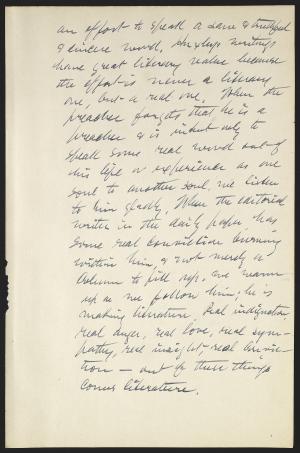 an effort to speak a sane & truthful
& sincere word, writings
have great literary value because
the effort is never a literary
one, but a real one. When the
preacher forgets that he is a
preacher & is intent only to
speak some real word out of
his life or experience as one
soul to another soul, we listen
to him gladly. When the editorial
writer in the daily paper has
some real conviction burning
within him & not merely a
column to fill up, we warm
up as we follow him; he is
making literature. Real indignation,
real anger, real love, real sym-
pathy, real insight, real convic-
tion — out of these things
comes literature.